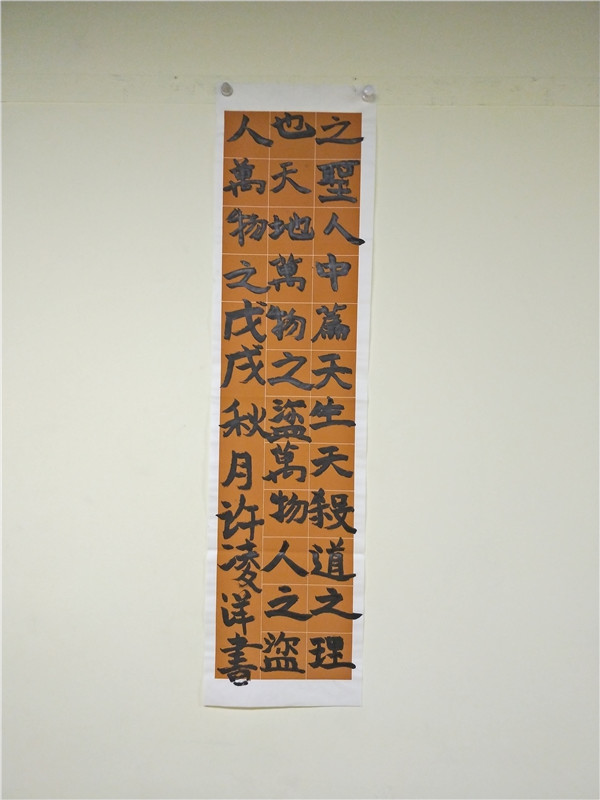 之聖人中篇天生天殺道之理
也天地萬物之盜萬物人之盜
人萬物之戊戌秋月许凌洋書